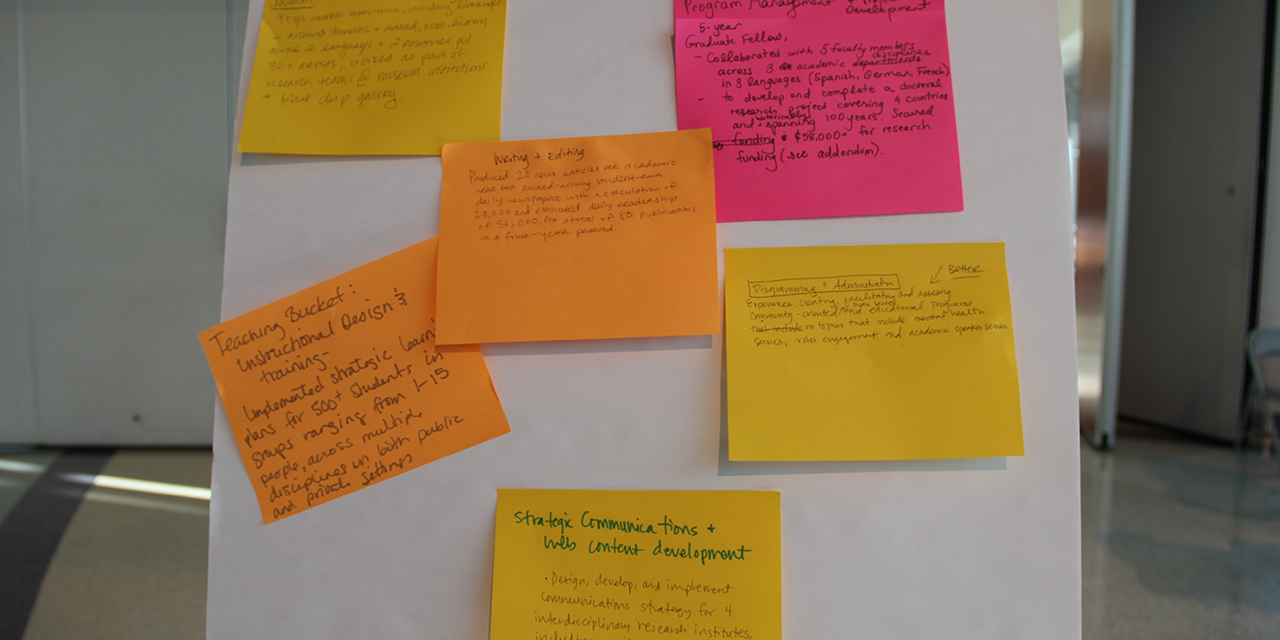 9+ yrs museum experience, including
across domestic + abroad, oral history
across 2 languages + 2 countries w/
30+ artists, worked as part of
research teams @ museum institutions
+ blue chip gallery
Program Management + Project
Development
5-year
Graduate Fellow,
- Collaborated with 5 faculty members
across 3 academic departments disciplines
in 3 languages (Spanish, German, French)
- to develop and complete a doctoral
research project covering 4 countries
and historically spanning 100 years. Secured
funding $58,000+ for research
funding (see addendum).
Writing + Editing
Produced 20 news articles per academic
year for award-winning student-run
daily newspaper with a circulation of
20,000 and estimated daily readership
of 55,000, for a total of 80 publications
in a four-year period.
Teaching Bucket:
Instructional Design &
training-
Implemented strategic learn
plans for 500+ students in
groups ranging from 1-15
people, across multiple
disciplines in both public
and private settings
Better
Programming + Administration
Experience creating, facilitating and assessing
community-oriented and educational programs
that include on topics that include mental health
services, voter engagement and academic speaker series
Strategic Communications +
Web content development
• Design, develop, and implement
communications strategy for 4
interdisciplinary research institutes,